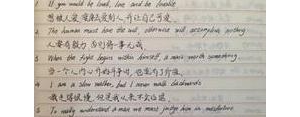 If you would be loved, love and be lovable
想被人爱,就要去爱别人,并让自己可爱。
2 The human must have the will, otherwise will accomplish nothing
人要有毅力,否则将一事无成。
3 When the fight begins within himself, a man's worth something.
当一个人内心开始斗争时,他就有了价值。
4 I am a slow walker, but I never walk backwards
我走得很慢,但是我从来不会后退。
5 To really understand a man we must judge him in misfortune